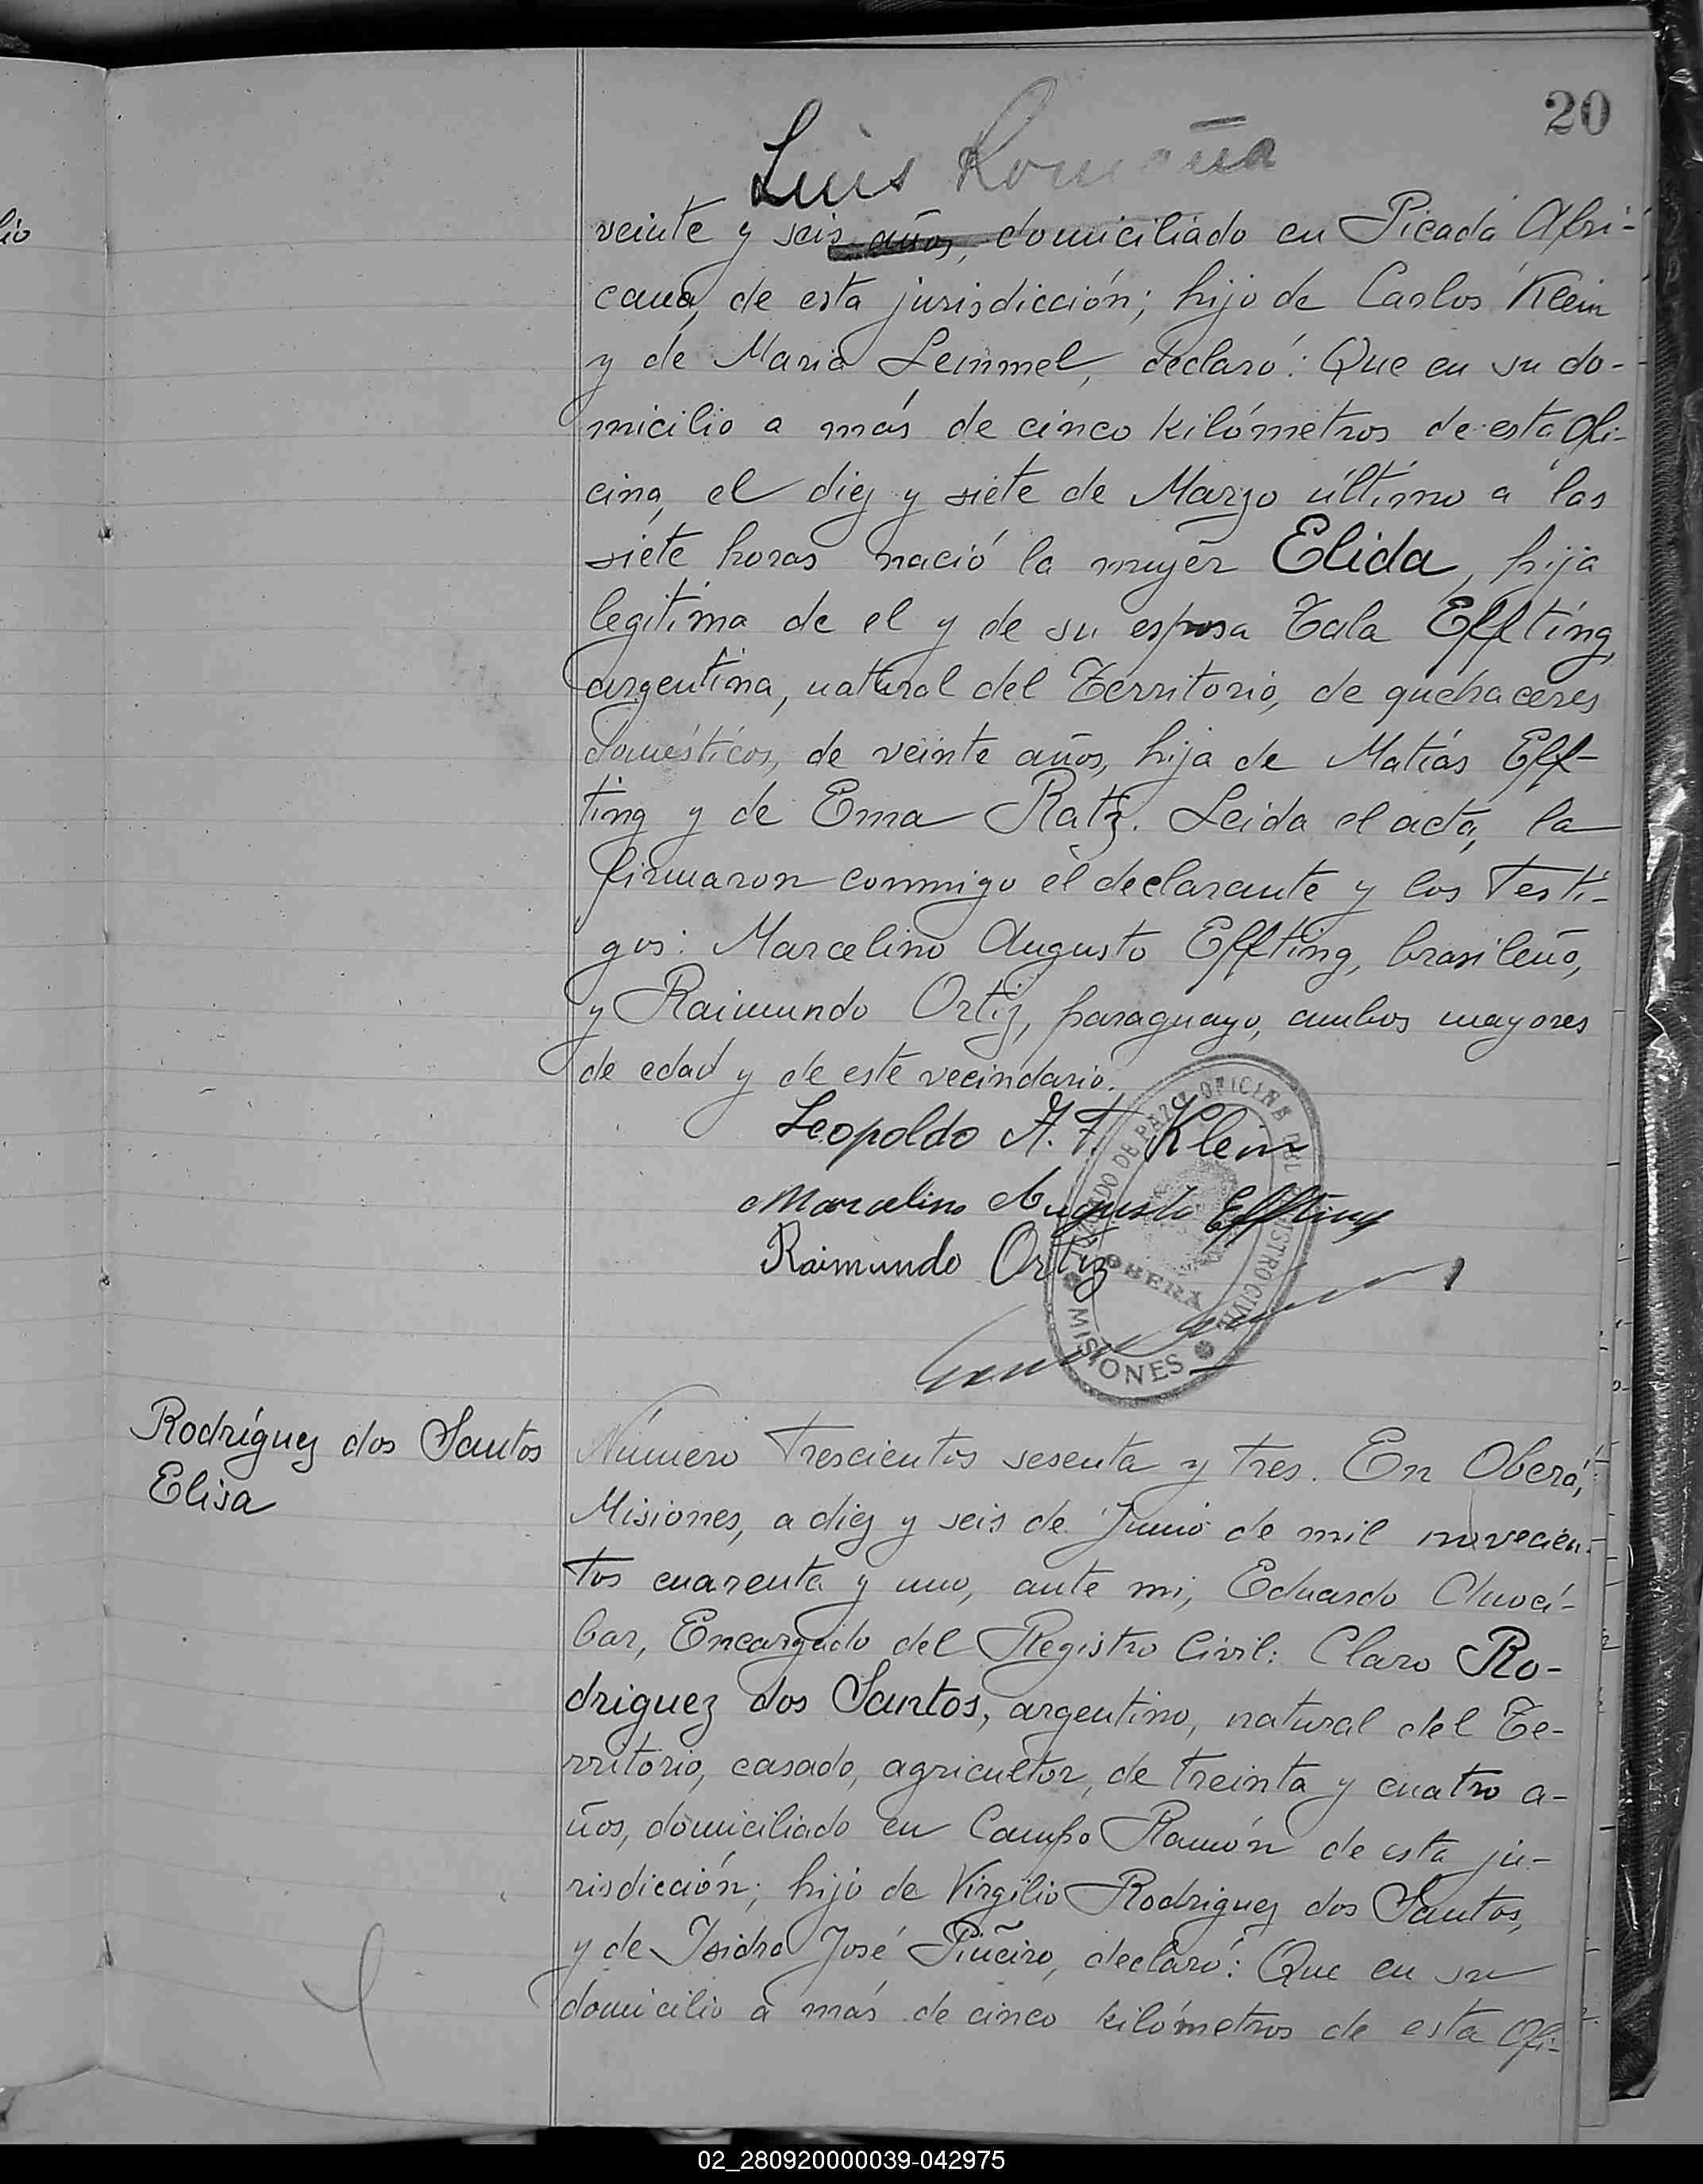 20
Luis Romaña
veinte y seis años, domiciliado en Picada Afri-
cana, de esta jurisdicción; hijo de Carlos Klein
y de Maria Lemmel, declaró: Que en su do-
micilio a más de cinco kilómetros de esta Ofi-
cina, el diez y siete de Marzo último a las
siete horas nació la mujer Elida, hija
legitima de el y de su esposa Tala Effting,
argentina, natural del Territorio, de quehaceres
domésticos, de veinte años, hija de Matías Eff-
ting y de Ema Ratz. Leida el acta, la
firmaron conmigo el declarante y los testi-
gos: Marcelino Augusto Effting, brasileño,
y Raimundo Ortiz, paraguayo, ambos mayores
de edad y de este vecindario.
Leopoldo A. F. Klein
Marcelino Augusto Effting
Raimundo Ortiz
JUZGADO DE PAZ Y OFICINA DEL REGISTRO CIVIL
OBERÁ
MISIONES
Rodríguez dos Santos
Elisa
Número trescientos sesenta y tres. En Oberá,
Misiones, a diez y seis de Junio de mil novecien-
tos cuarenta y uno, ante mi, Eduardo
bar, Encargado del Registro Civil: Claro Ro-
driguez dos Santos, argentino, natural del Te-
rritorio, casado, agricultor, de treinta y cuatro a-
ños, domiciliado en Campo Ramón de esta ju-
risdicción; hijo de Virgilio Rodriguez dos Santos,
y de Isidra José Piñeiro, declaró: Que en su
domicilio a más de cinco kilómetros de esta Ofi-
02_280920000039-042975